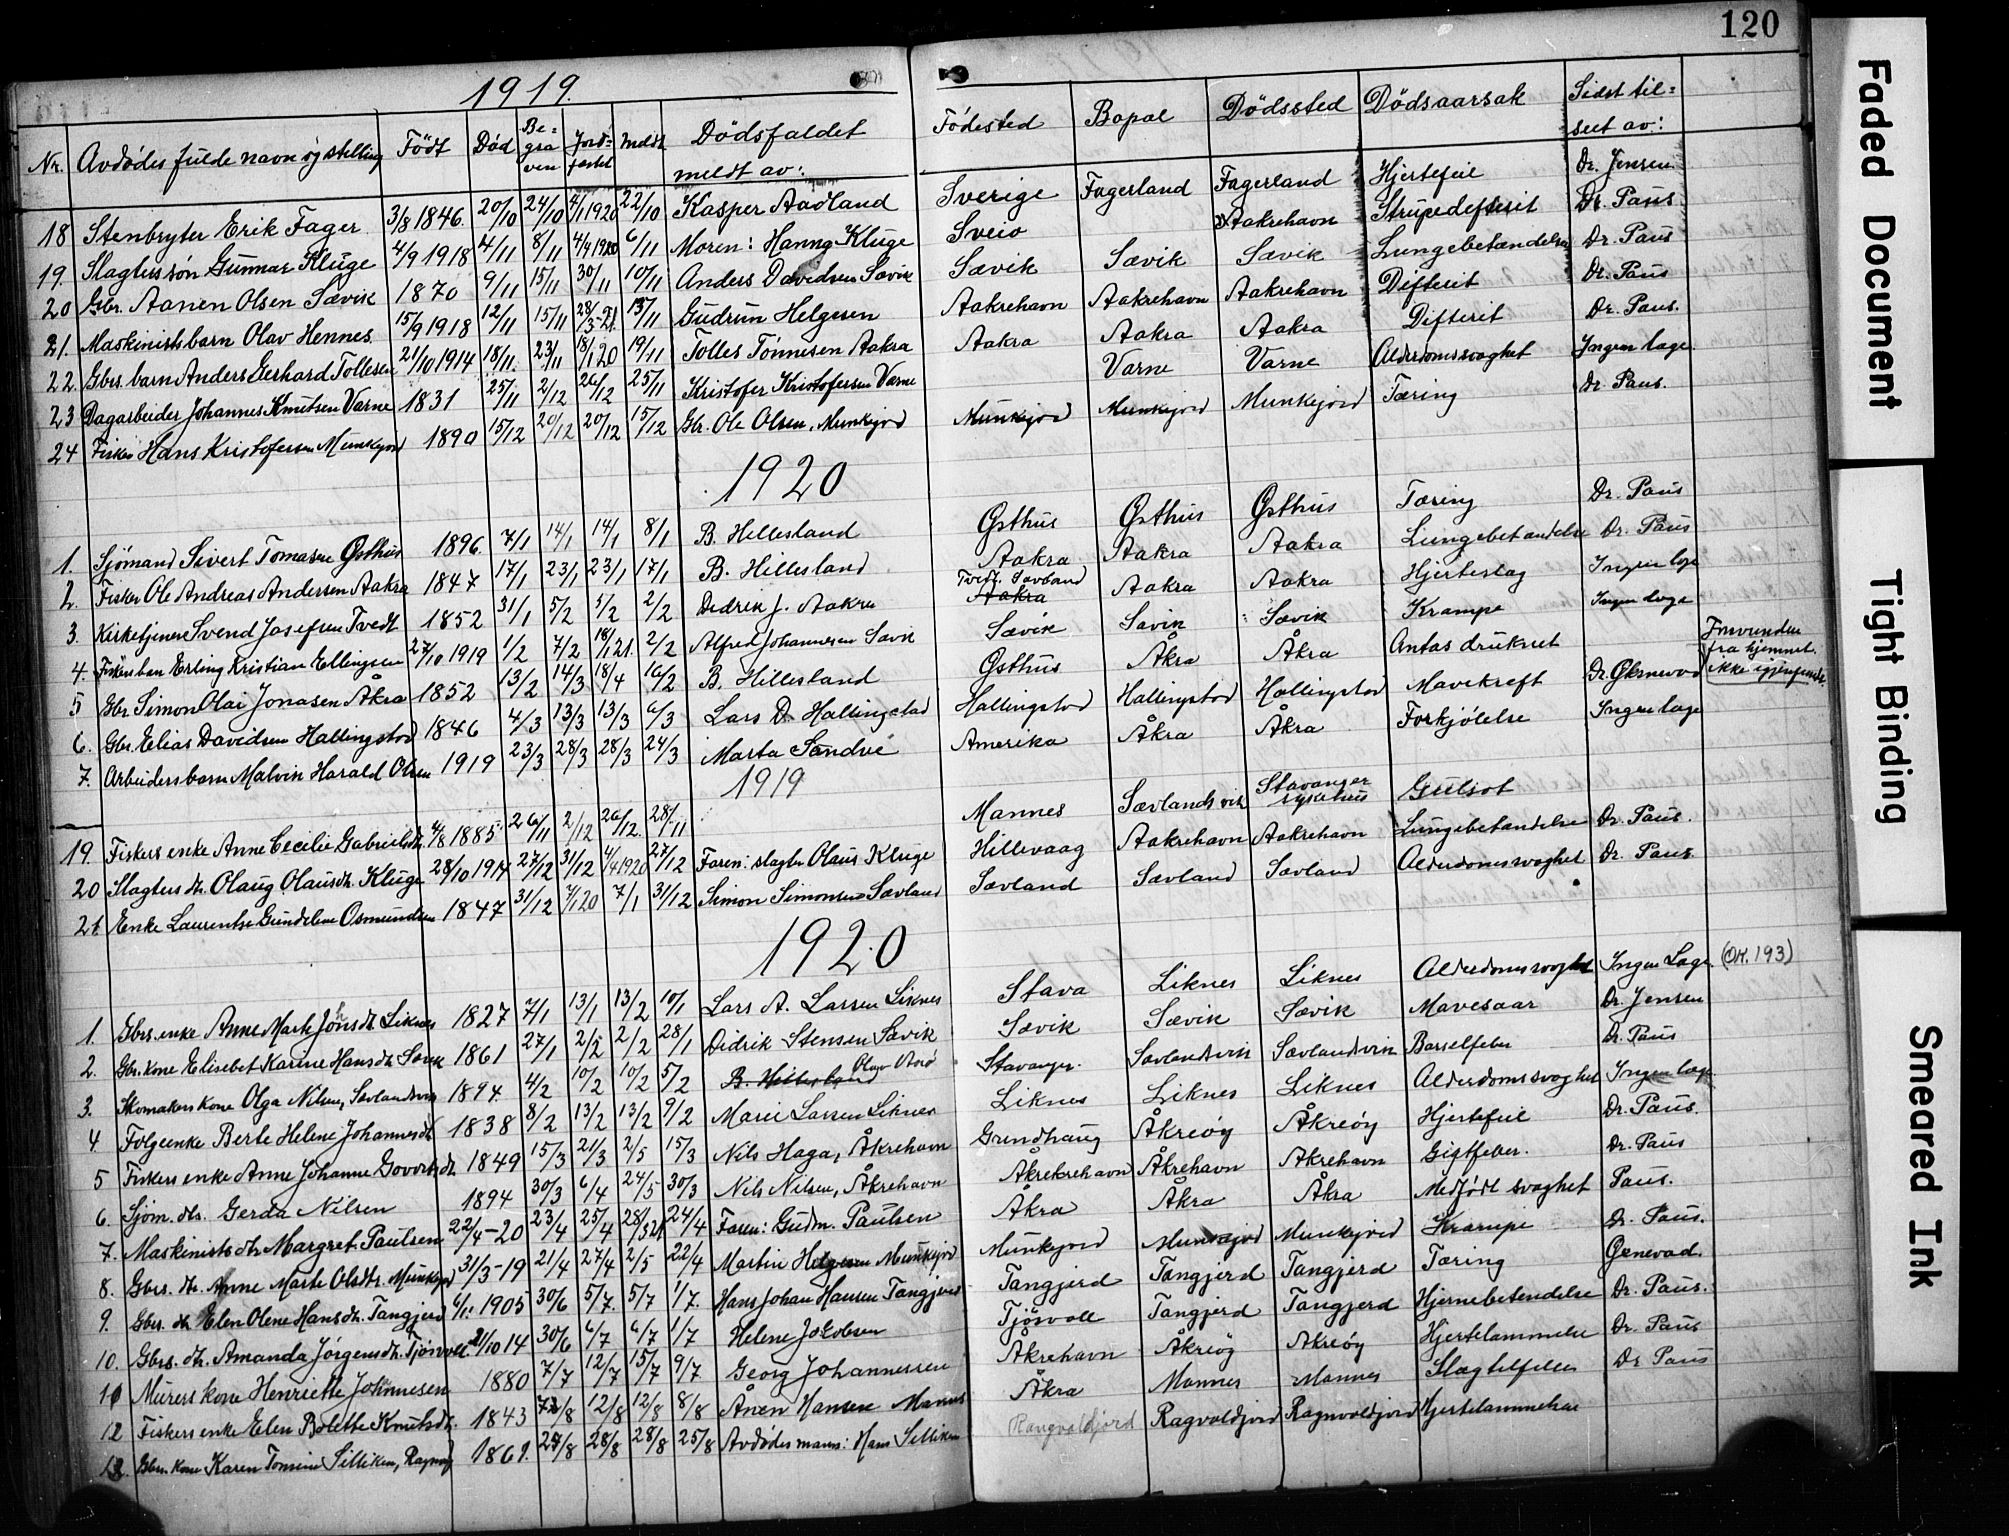 120
1919.
Nr. Avdødes fulde navn og stilling Født Død Be=graven Jord=fæstet Meldt Dødsfaldet meldt av: Fødested Bopæl Dødssted Dødsaarsak Sidst til=seet av:
18 Stenbryter Erik Fager 3/8 1846. 20/10 24/10 4/1 1920 22/10 Kasper Aadland Sverige Fagerland Fagerland Hjertefeil Dr. Jensen
19. Slagterssøn Gunnar Kluge 4/9 1918 4/11 8/11 4/4 1920 6/11 Moren: Hanna Kluge Sveio Aakrehavn Strupedefterit Dr. Paus
20 Gbr. Aanen Olsen Sævik 1870 9/11 15/11 30/11 10/11 Anders Davidsen Sævik Sævik Sævik Sævik Lungebetændelse Dr. Paus
21. Maskinistbarn Olav Hennes 15/9 1918 12/11 15/11 28/3-21 13/11 Gudrun Helgesen Aakrehavn Aakrehavn Aakrehavn Difterit Dr. Paus
22. Gbrs. barn Anders Gerhard Tollesen 21/10 1914 18/11. 23/11 18/1 20 19/11 Tolles Tønnesen Aakra Aakra Aakra Aakra Difterit Dr. Paus.
23 Dagarbeider Johannes Knutsen Varne 1831 25/11 2/12 26/12 25/11 Kristofer Kristofersen Varne Varne Varne Alderdomssvaghet Ingen læge
24 Fisker Hans Kristofersen Munkejord 1890 15/12 20/12 20/12 15/12 Gbr. Ole Olsen, Munkejord Munkejord Munkejord Munkejord Tæring Dr. Paus.
1920
1. Sjømand Sivert Tomasen Østhus 1896. 7/1 14/1 14/1 8/1 B. Hillesland Østhus Østhus Østhus Tæring Dr. Paus
2. Fisker Ole Andreas Andersen Aakra 1847 17/1 23/1 23/1 17/1 B. Hillesland Aakra Aakra Aakra Lungebetændelse Dr. Paus
3. Kirketjener Svend Josefsen Tvedt 1852 31/1 5/2 5/2 2/2 Didrik J. Aakra Tvedt. Aakra Aakra Aakra Hjerteslag Ingen læge
4. Erling Kristian Ellingsen 27/10 1919 1/2 7/2 18/1 21. 2/2 Alfred Johannesen Sævik Sævik Sævik Sævik Krampe Ingen læge
5 Gbr Simon Olai Jonasen Åkra 1852 13/2 14/3 18/4 16/2 B. Hillesland Østhus Åkra Åkra Antas druknet Forsvunden fra hjemmet. ikke igjenfundet.
6. Gbr. Elias Davidsen Hallingstad 1846 4/3 13/3 13/3 6/3 Lars D. Hallingstad Hallingstad Hallingstad Hallingstad Mavekreft
7. Arbeidersbarn Malvin Harald Olsen 1919 23/3 28/3 28/3 24/3 Marta Sandve Amerika Åkra Åkra Forkjølelse Ingen læge
1919
19. Fiskers enke Anne Cecilie Gabrielsdtr. 4/8 1885 26/11 2/12 26/12. 28/11 Mannes Sævlandsvik Stavanger sykehus Gulsot
20 Slagters dtr. Olaug Olausdtr. Kluge 28/10 1914 27/12 31/12 4/4 1920 27/12 Faren: slagter Olaus Kluge Hillevaag Aakrehavn Aakrehavn Lungebetændelse Dr. Paus.
21. Enke Laurentse Gundeline Osmundsen 1847 31/12 7/1 20 7/1 31/12 Simon Simonsen Sævland Sævland Sævland Sævland Alderdomssvaghet Dr. Paus
1920
1. Gbrs. enke Anne Marte Johnsdtr. Liknes 1827 7/1 13/1 13/2 10/1 Lars A. Larsen Liknes Stava Liknes Liknes Alderdomssvaghet Ingen Læge. (OK. 193)
2. Gbr. kone Elisebet Karine Hansdtr. Sævik 1861 27/1 2/2 2/2 28/1 Didrik Stensen Sævik Sævik Sævik Sævik Mavesaar Dr. Jensen
3. Skomakers kone Olga Nilsen, Sævlandsvik 1894 4/2 10/2 10/2 5/2 B. Hillesland Stavanger. Sævlandsvik Sævlandsvik Barselfeber Dr. Paus
4 Folgeenke Berte Helene Johannesdtr 1838 8/2 13/2 13/2 9/2 Marie Larsen Liknes Liknes Liknes Liknes Alderdomssvaghet Ingen læge
5 Fiskers enke Anne Johanne Govertsdtr 1849 15/3 21/3 2/5 15/3 Nils Haga, Åkrehavn Grindhaug Åkreøy Åkreøy Hjertefeil Dr. Paus.
6. Sjøm. dtr. Gerda Nilsen 1894 30/3 6/4 24/5 30/3 Nils Nilsen, Åkrehavn Åkrekrehavn Åkrehavn Akrehavn Gigtfeber. Dr. Paus
7. Maskinists dtr Margret Paulsen 22/4-20 23/4 25/4 28/3 21 24/4 Faren: Gudm. Paulsen Åkra Åkra Åkra Medfødt svaghet Paus.
8. Gbrs. dtr. Anne Marte Olsdtr. Munkejord 31/3-19 21/4 27/4 2/5 22/4 Martin Helgesen Munkejord Munkejord Munkejord Munkejord Krampe Dr. Paus.
9. Gbrs. dtr Elen Olene Hansdtr. Tangjerd 1905 30/6 5/7 5/7 1/7. Hans Johan Hansen Tangjerd Tangjerd Tangjerd Tangjerd Tæring Grnevad.
10. Gbrs. dtr. Amanda Jørgensdtr. Tjøsvoll 21/10 14 30/6 6/7 6/7 1/7 Helene Jakobsen Tjøsvoll Tangjerd Tangjerd Hjernebetendelse Dr. Paus.
11 Murers kone Henriette Johannesen 1880 7/7 12/7 15/7 9/7 Georg Johannessen Åkrehavn Åkreøy Akreøy Hjertelammelse Dr. Paus
12 Fiskers enke Elen Bolette Knutsdtr. 1843 7/8 12/8 12/8 8/8 Ånen Hansen Mannes Åkra Mannes Mannes Slagtilfelle Dr Paus
13. Gbrs. kone Karen Tomine Silliken, 1861. 24/8 28/8 28/8 25/8 Avdødes mann: Hans Silliken Rangvaldjord Ragvaldjord Ragnvaldjord Hjertelammelse
Faded Document
Tight Binding
Smeared Ink